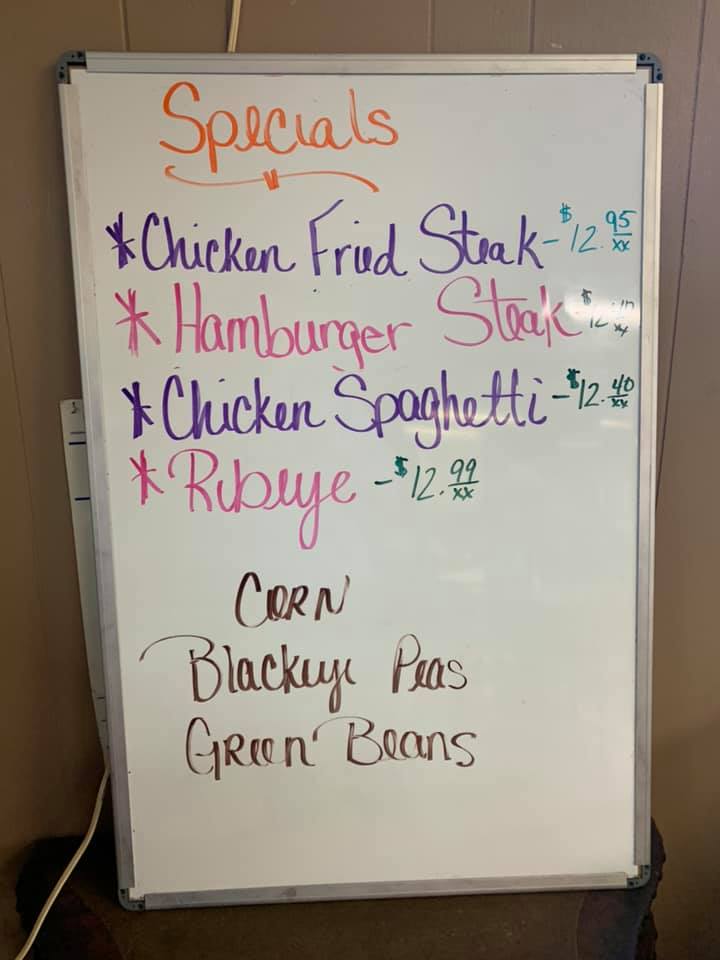 Specials
*Chicken Fried Steak-$12.95/xx
*Hamburger Steak $12.
*Chicken Spaghetti-$12.40/xx
*Ribeye -$12.99/xx
CORN
Blackeye Peas
Green Beans